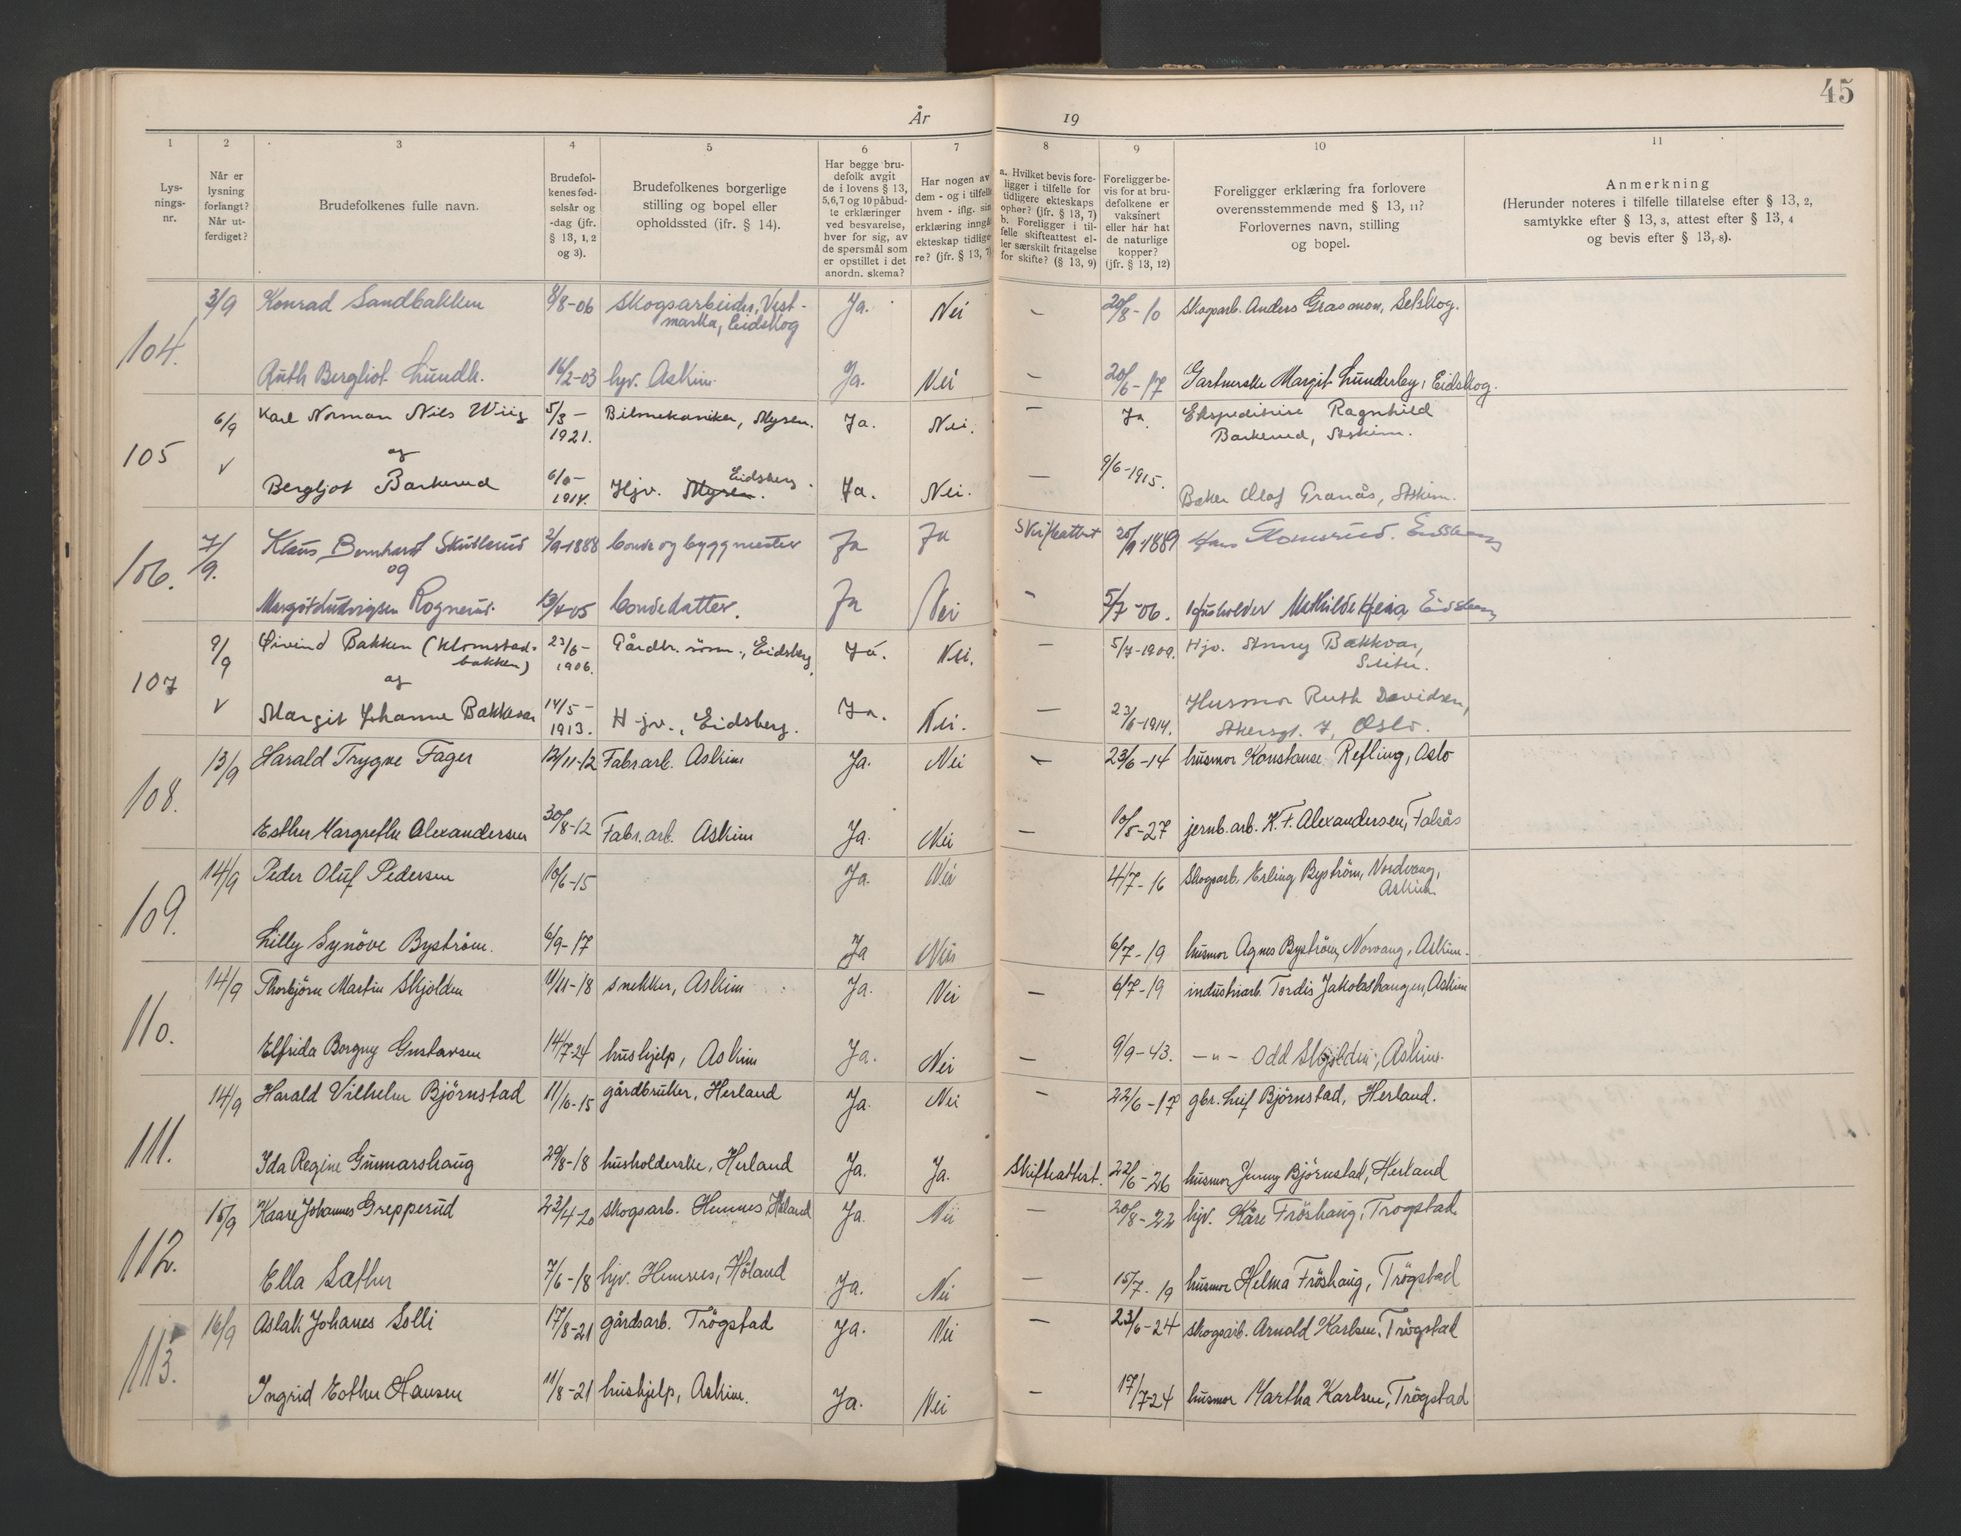 45
År 19
1 2 3 4 5 6 7 8 9 10 11
Lys-
nings-
nr.
Når er
lysning
forlangt?
Når ut-
ferdiget?
Brudefolkenes fulle navn.
Brudefol-
kenes fød-
selsår og
-dag (jfr.
§ 13, 1, 2
og 3).
Brudefolkenes borgerlige
stilling og bopel eller
opholdssted (ifr. § 14).
Har begge bru-
defolk avgit
de i lovens § 13,
5,6,7 og 10 påbud-
te erklæringer
ved besvarelse,
hver for sig, av
de spørsmål som
er opstillet i det
anordn. skema?
Har nogen av
dem - og i tilfelle
hvem - iflg. sin
erklæring inngå
ekteskap tidlige-
re? (jfr. § 13, 7)
a. Hvilket bevis fore-
ligger i tilfelle for
tidligere ekteskaps
ophør? (jfr. § 13, 7)
b. Foreligger i til-
felle skifteattest el-
ler særskilt fritagelse
for skifte? (§ 13, 9)
Foreligger be-
vis for at bru-
defolkene er
vaksinert
eller har hat
de naturlige
kopper?
(jfr. § 13, 12)
Foreligger erklæring fra forlovere
overensstemmende med § 13, 11?
Forlovernes navn, stilling
og bopel.
Anmerkning
(Herunder noteres i tilfelle tillatelse efter § 13, 2,
samtykke efter § 13, 3, attest efter § 13, 4
og bevis efter § 13, 8).
104. 3/9 Konrad Sandbakken 8/8-06 Skogsarbeider, Vest-
marka, Eidskog Ja. Nei – 20/8-10 Skogsarb. Anders Grasmon, Setskog.
Ruth Bergliot Lundh. 16/2-03 hjv. Askim. Ja. Nei – 20/6-17 Gartnerske Margit Lunderby, Eidskog.
105 6/9 Karl Norman Nils Wiig 5/3-1921. Bilmekaniker, Mysen. Ja. Nei. – Ja. Ekspeditrise Ragnhild
Barkerud, Askim.
og
v Bergljot Barkerud 1914. Hjv. Mysen. Eidsberg. Ja. Nei. – 9/6-1915. Baker Olaf Granås, Askim.
106. 7/9. Klaus Bernhard Skullerud 2/9-1888 bonde og byggmester Ja Ja Skifteattest 20/9-1889 Hans Eidsberg
og
Margit Ludvigsen Rognerud. 13/4-05 bondedatter. Ja Nei – 5/7-06. Mathilde Heia Eidsberg
107 9/9 Øivind Bakken (Klomstad-
bakken) 23/6-1906. Gårdbr. sønn., Eidsberg, Ja. Nei. – 5/7-1909. Hjv. Anny Bakkvar,
og
v Margit Johanne Bakkvar 14/5-1913. Hjv., Eidsberg. Ja. Nei. – 23/6-1914. Husmor Ruth Davidsen,
Akersgt. 7, Oslo.
108. 13/9 Harald Trygve Fager 12/11-12 Fabr.arb. Askim Ja. Nei – 23/6-14 husmor Konstanse Refling, Oslo
Esther Margrethe Alexandersen 30/8-12 Fabr.arb. Askim Ja. Nei – 10/5-27 jernb.arb. K.F. Alexandersen,
109. 14/9 Peder Oluf Pedersen 10/6-15 Ja. Nei 4/7-16 Skogsarb. Erling Byström, Nordvang,
Askim
Lilly Synöve Byström. 6/9-17 Ja Nei 6/7-19 husmor Agnes Byström, Norvang, Askim.
110. 14/9 Thorbjörn Martin Skjolden 11/11-18 snekker, Askim Ja. Nei – 6/7-19 industriarb. Tordis Jakobshaugen, Askim
Elfrida Borgny Gustavsen 14/7-24 hushjelp, Askim Ja. Nei – 9/9-43. –"– Odd Skjolden, Askim.
111. 14/9 Harald Vilhelm Björnstad 11/10-15 gårdbruker, Herland Ja. Nei – 22/6-17 gbr. Leif Björnstad, Herland.
Ida Regine Gunnarshaug 29/8-18 husholderske, Herland Ja. Ja. Skifteattest. 22/6-26 husmor Jenny Björnstad, Herland
112. 15/9 Kaare Johannes Grepperud 23/4-20 skogsarb. Hemnes, Höland Ja. Nei – 20/8-22 hjv. Kåre Fröshaug, Trögstad
Ella Sæther 7/6-18 hjv. Hemnes, Höland Ja. Nei – 15/7-19 husmor Helma Fröshaug, Trögstad
113. 16/9 Aslak Johanes Solli 17/8-21 gårdsarb. Trögstad Ja. Nei – 23/6-24 skogsarb. Arnold Karlsen, Trögstad
Ingrid Esther Hansen 11/8-21 hushjelp, Askim. Ja. Nei – 17/7-24 husmor Martha Karlsen, Trögstad